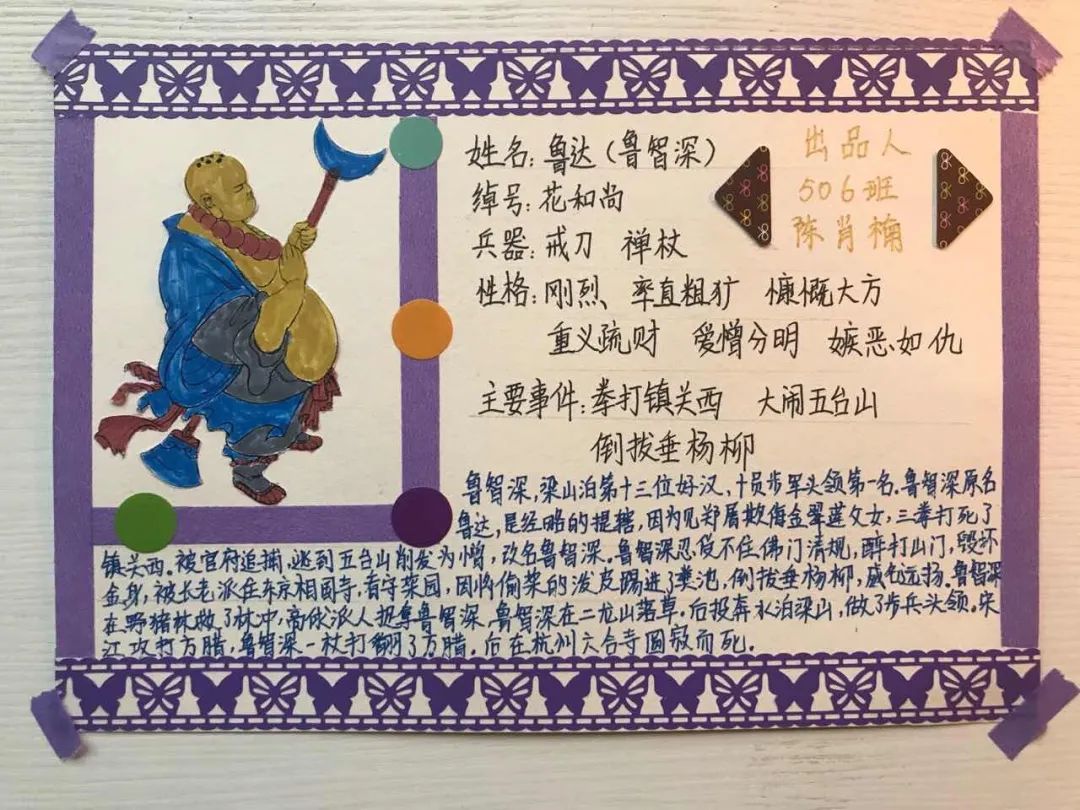 姓名:鲁达(鲁智深)
绰号:花和尚
兵器:戒刀 禅杖
性格:刚烈、率直粗犷 慷慨大方
重义疏财 爱憎分明 嫉恶如仇
主要事件:拳打镇关西 大闹五台山
倒拔垂杨柳
出品人
506班
陈肖楠
鲁智深,梁山泊第十三位好汉,十员步军头领第一名.鲁智深原名
鲁达,是经略的提辖,因为见郑屠欺侮金翠莲父女,三拳打死了
镇关西.被官府追捕,逃到五台山削发为僧,改名鲁智深.鲁智深忍受不住佛门清规,醉打山门,毁坏
金身,被长老派往东京相国寺,看守菜园,因将偷菜的泼皮踢进了粪池,倒拔垂杨柳,威名远扬.鲁智深
在野猪林救了林冲,高俅派人捉拿鲁智深,鲁智深在二龙山落草.后投奔水泊梁山,做了步兵头领.宋
江攻打方腊,鲁智深一杖打翻了方腊.后在杭州六合寺圆寂而死.